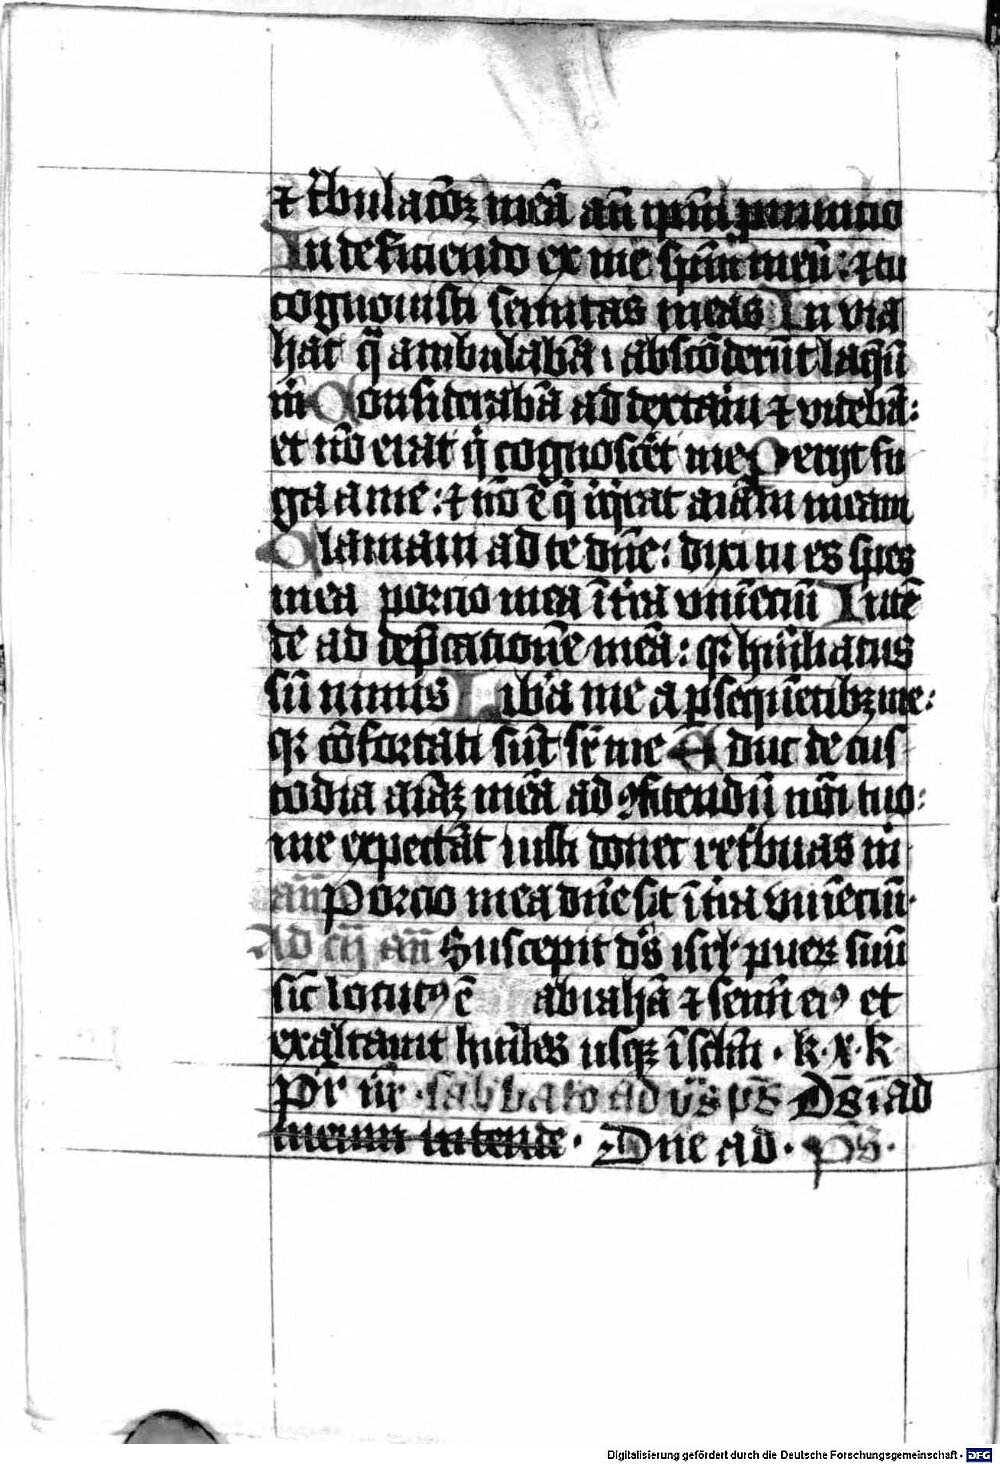 ⁊ t͛bulac̄oꝫ meā an̄ ip̄m ꝓnuncio
In deficiendo ex me sp̄m meū: ⁊ tu
cognouisti semitas meas In via
hac q̄ ambulabā abscōderūt laq̄ū
m̄ Considerabā ad dextram ⁊ videbā:
et nō erat q̄ cognoscēt me Perijt fu
ga a me: ⁊ nō ē q̄ iq̄rat aīam meam
Clamaui ad te dn̄e: dixi tu es spes
mea porcio mea ī t̄ra viuēciū Intē
de ad dep̄cationē meā: qꝛ hūiliatus
sū nimis Lib͛a me a ꝑsequētibꝫ me:
qꝛ cōfortati sūt sr̄ me Educ de cus
todia aīaꝫ meā ad ꝯfitendū nōi tuo:
me expectāt iusti donec ret͛buas m̄
an̄ Porcio mea dn̄e sit ī t̄ra viuēciū.
Ad cij an̄ Suscepit ds̄ isrl̄ pueꝝ suū
sic̄ locutꝰ ē abrahā ⁊ semī eiꝰ et
exaltauit hūiles usqꝫ ī sclm̄ . k . x . k
Pr̄ nr̄ . sabbato ad vs̄ ps̄ Ds̄ ī ad
meum intende . Dn̄e ad . ps̄ .
Digitalisierung gefördert durch die Deutsche Forschungsgemeinschaft - DFG